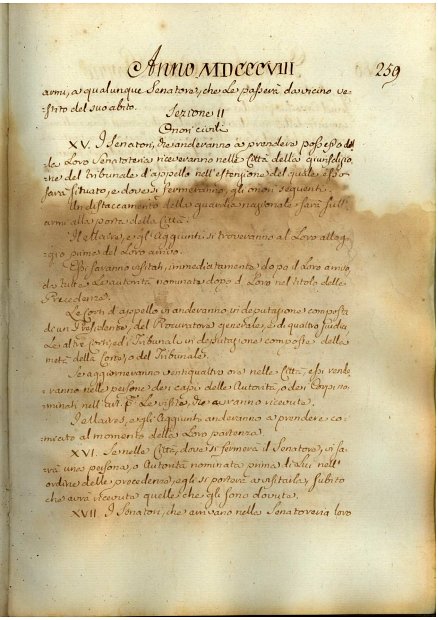 Anno MDCCCVIII 259
armi, a qualunque Senatore, che le passerà da vicino ve-
stito del suo abito.
Sezione II
Onori civili
XV. I Senatori, che anderanno a prendere possesso del-
la loro Senatoreria riceveranno nelle Città della giurisdizio-
ne del Tribunale d'appello nell'estensione del quale esso
sarà situato, e dove si fermeranno, gli onori seguenti.
Un distaccamento della guardia nazionale sarà sull'
armi alla porta della Città:
Il Maire, e gli Aggiunti si troveranno al loro allog-
gio prima del loro arrivo.
Essi saranno visitati, immediatamente dopo il loro arrivo,
da tutte le autorità nominate dopo di loro nel titolo delle
Precedenze.
Le Corti d'appello vi anderanno in deputazione composta
di un Presidente, del Procuratore generale, e di quattro giudici,
le altre Corti, ed i Tribunali in deputazione composte della
metà della Corte, o del Tribunale.
Se aggiorneranno ventiquattro ore nella Città, essi rende-
ranno nelle persone dei capi delle Autorità, o dei Corpi no-
minati nell'art. le visite, che avranno ricevute.
I Maires, e gli Aggiunti anderanno a prendere co-
miato al momento della loro partenza.
XVI. Se nella Città, dove si fermerà il Senatore, vi sa-
rà una persona, o Autorità nominata prima di lui nell'
ordine delle precedenze, egli si porterà a visitarla, subito
che avrà ricevute quelle che gli sono dovute.
XVII. I Senatori, che arrivano nella Senatoreria loro